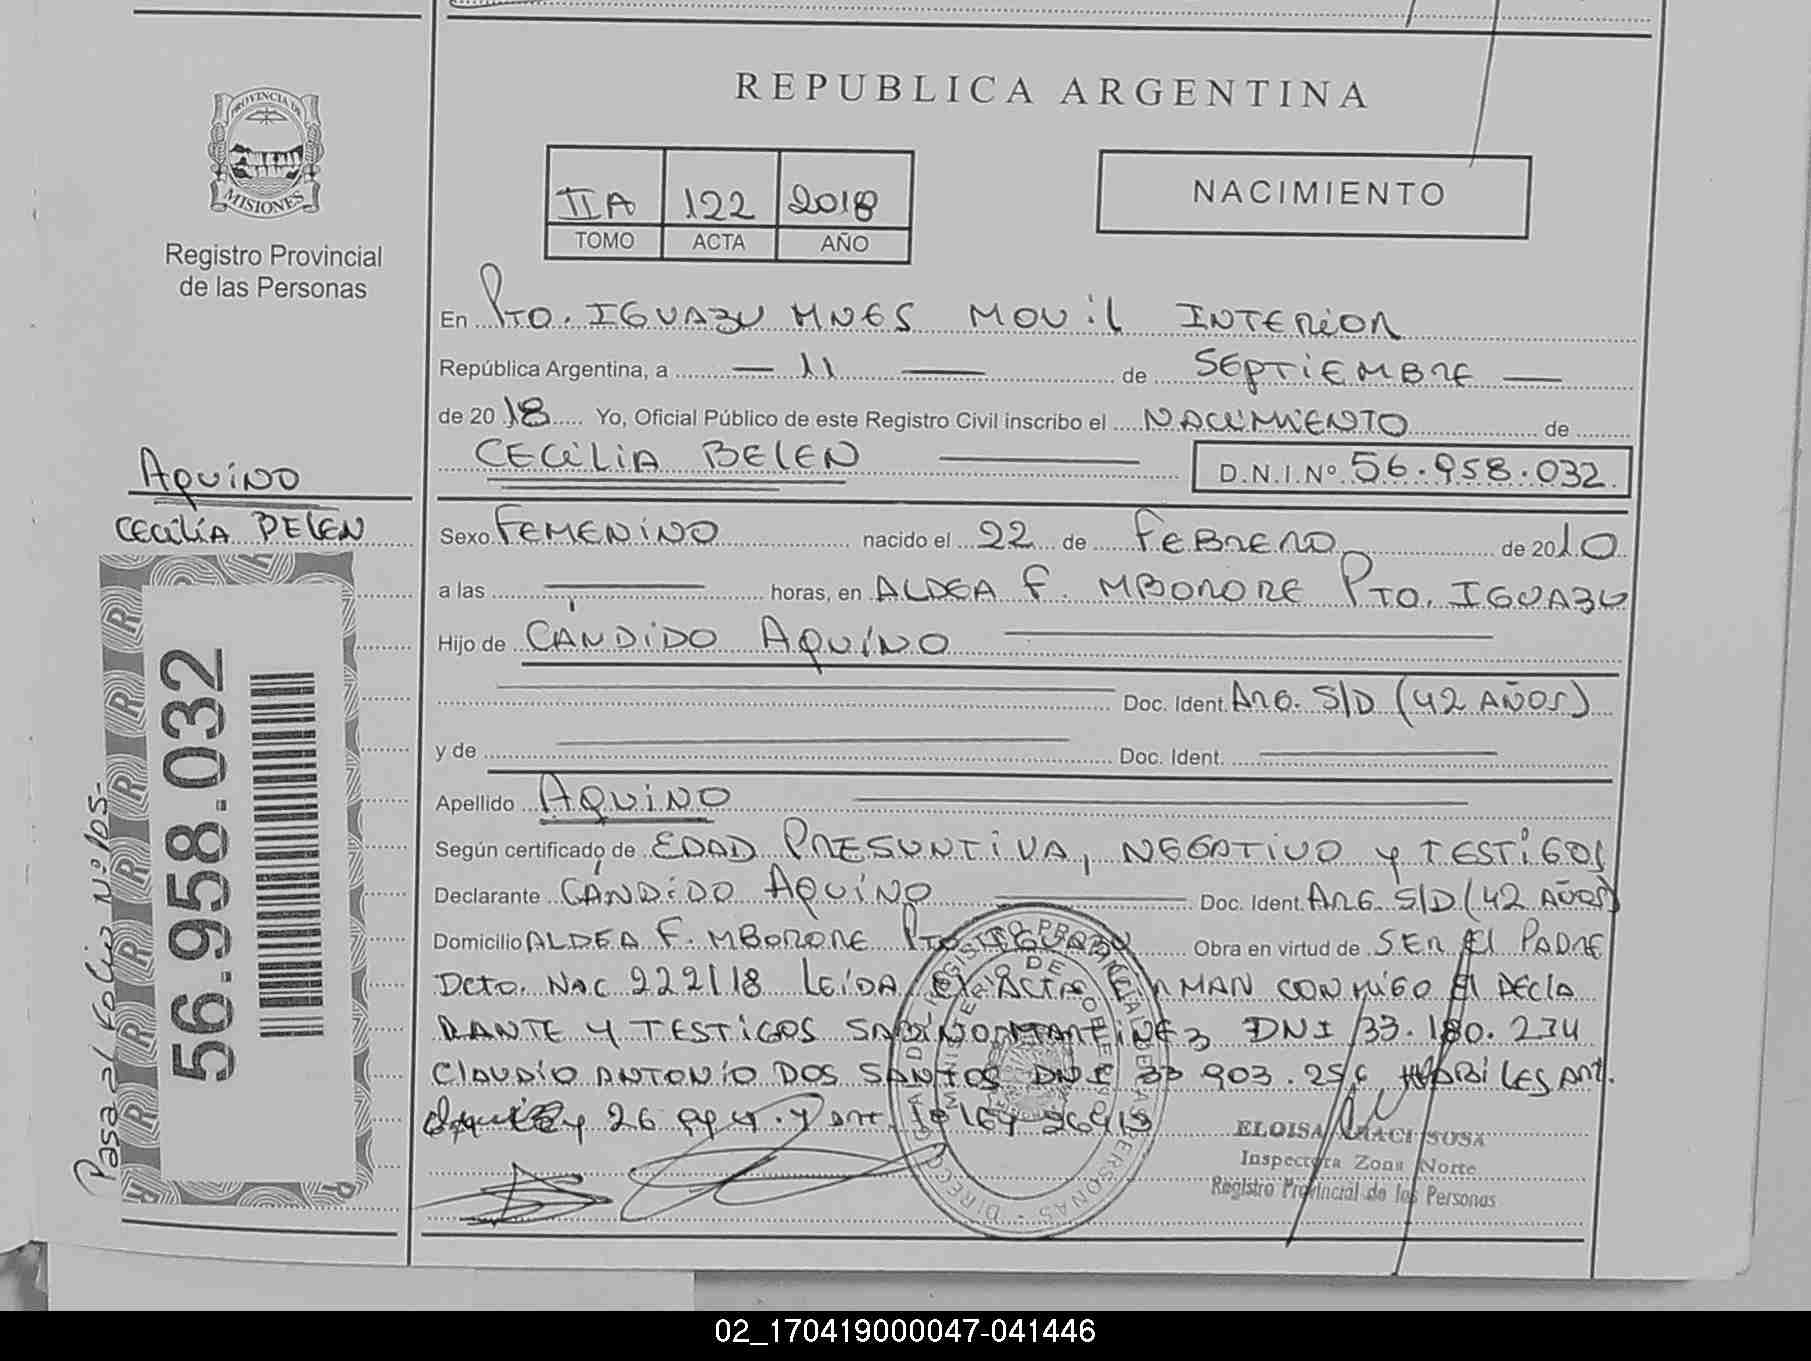 REPUBLICA ARGENTINA
PROVINCIA DE
MISIONES
Registro Provincial
de las Personas
IIA 122 2018
TOMO ACTA AÑO
NACIMIENTO
En Pto. IGUAZU MNES MOVIL INTERIOR
República Argentina, a — 11 — de SEPTIEMBRE —
de 2018 Yo, Oficial Público de este Registro Civil inscribo el NACIMIENTO de
CECILIA BELEN — D.N.I.Nº 56.958.032
AQUINO
CECILIA BELEN
Sexo FEMENINO nacido el 22 de FEBRERO de 2010
a las — horas, en ALDEA F. MBORORE PTO. IGUAZU
Hijo de CANDIDO AQUINO —
— Doc. Ident. ARG. S/D (42 AÑOS)
y de — Doc. Ident. —
Apellido AQUINO —
Según certificado de EDAD PRESUNTIVA, NEGATIVO Y TESTIGOS
Declarante CANDIDO AQUINO — Doc. Ident. ARG. S/D (42 AÑOS)
Domicilio ALDEA F. MBORORE PTO IGUAZU Obra en virtud de SER El PADRE
Dcto. NAC 222/18 LEIDA El ACTA FIRMAN CONMIGO El DECLA
RANTE Y TESTIGOS SABINO MARTINEZ DNI 33.180.234
CLAUDIO ANTONIO DOS SANTOS DNI 33 903.256 HABILES ART.
26 994. y
ELOISA ARACI SOSA
Inspectora Zona Norte
Registro Provincial de las Personas
DIRECC. GRAL. DE REGISTRO PROVINCIAL DE LAS PERSONAS
MINISTERIO DE GOBIERNO
56.958.032
Pasa al Folio Nº 105.
02_170419000047-041446